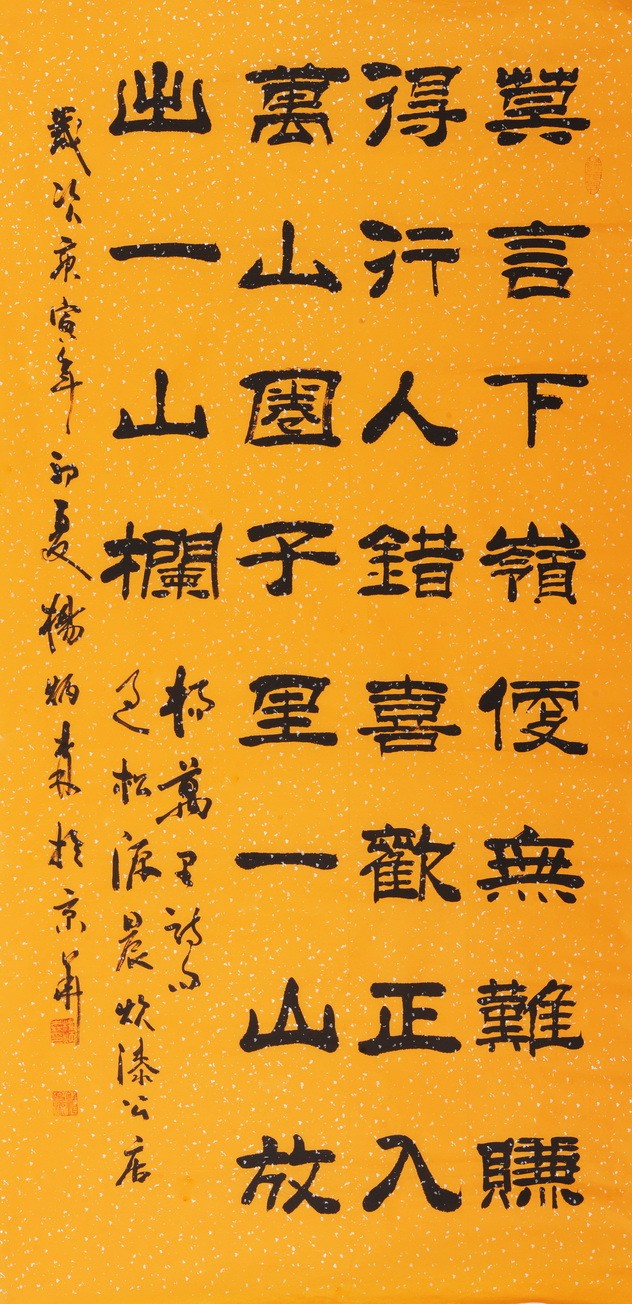 莫言下嶺便無難賺
得行人錯喜歡正入
萬山圈子里一山放
出一山欄
楊萬里詩句
過松源晨炊漆公店
歲次庚寅年初夏楊炳森於京華